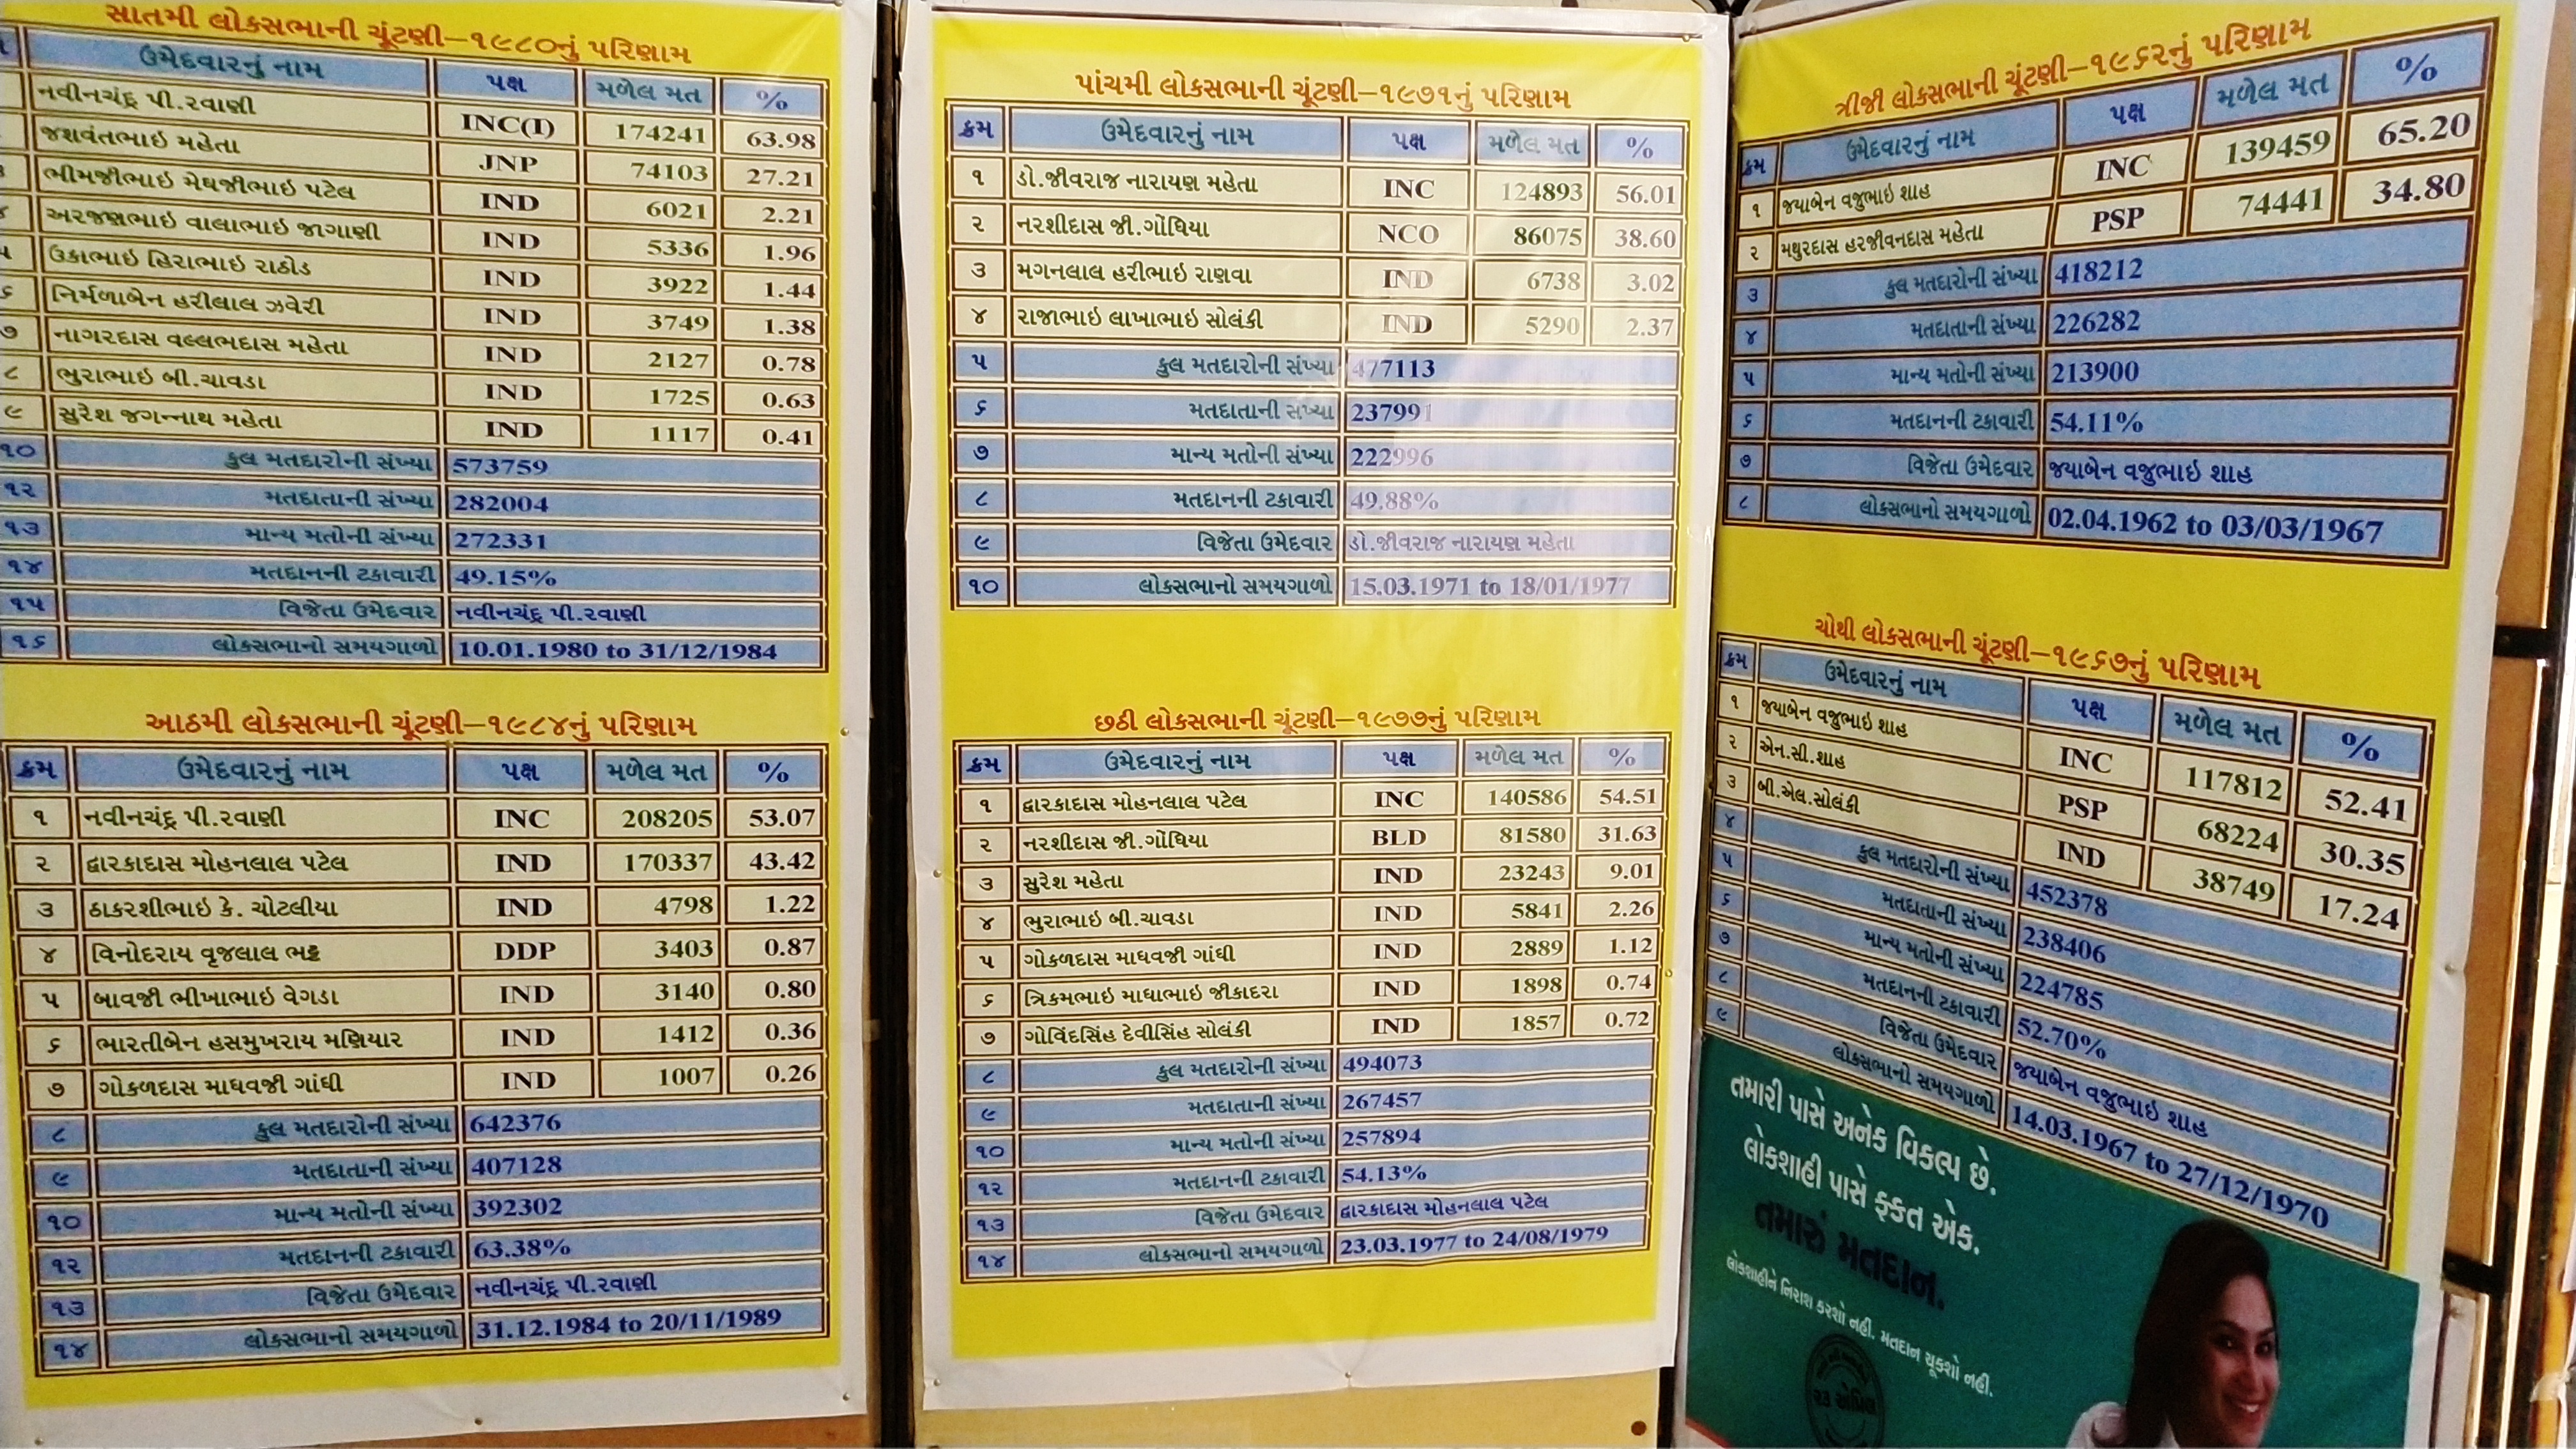 સાતમી લોકસભાની ચૂંટણી–૧૯૮૦નું પરિણામ
ઉમેદવારનું નામ પક્ષ મળેલ મત %
નવીનચંદ્ર પી.રવાણી INC(I) 174241 63.98
જશવંતભાઇ મહેતા JNP 74103 27.21
ભીમજીભાઇ મેઘજીભાઇ પટેલ IND 6021 2.21
૪ અરજણભાઇ વાલાભાઇ જાગાણી IND 5336 1.96
૫ ઉકાભાઇ હિરાભાઇ રાઠોડ IND 3922 1.44
૬ નિર્મળાબેન હરીલાલ ઝવેરી IND 3749 1.38
૭ નાગરદાસ વલ્લભદાસ મહેતા IND 2127 0.78
૮ ભુરાભાઇ બી.ચાવડા IND 1725 0.63
૯ સુરેશ જગન્નાથ મહેતા IND 1117 0.41
૧૦ કુલ મતદારોની સંખ્યા 573759
૧૨ મતદાતાની સંખ્યા 282004
૧૩ માન્ય મતોની સંખ્યા 272331
૧૪ મતદાનની ટકાવારી 49.15%
૧૫ વિજેતા ઉમેદવાર નવીનચંદ્ર પી.રવાણી
૧૬ લોકસભાનો સમયગાળો 10.01.1980 to 31/12/1984
આઠમી લોકસભાની ચૂંટણી–૧૯૮૪નું પરિણામ
ક્રમ ઉમેદવારનું નામ પક્ષ મળેલ મત %
૧ નવીનચંદ્ર પી.રવાણી INC 208205 53.07
૨ દ્વારકાદાસ મોહનલાલ પટેલ IND 170337 43.42
૩ ઠાકરશીભાઇ કે. ચોટલીયા IND 4798 1.22
૪ વિનોદરાય વૃજલાલ ભટ્ટ DDP 3403 0.87
૫ બાવજી ભીખાભાઇ વેગડા IND 3140 0.80
૬ ભારતીબેન હસમુખરાય મણિયાર IND 1412 0.36
૭ ગોકળદાસ માધવજી ગાંધી IND 1007 0.26
૮ કુલ મતદારોની સંખ્યા 642376
૯ મતદાતાની સંખ્યા 407128
૧૦ માન્ય મતોની સંખ્યા 392302
૧૨ મતદાનની ટકાવારી 63.38%
૧૩ વિજેતા ઉમેદવાર નવીનચંદ્ર પી.રવાણી
૧૪ લોકસભાનો સમયગાળો 31.12.1984 to 20/11/1989
પાંચમી લોકસભાની ચૂંટણી–૧૯૭૧નું પરિણામ
ક્રમ ઉમેદવારનું નામ પક્ષ મળેલ મત %
૧ ડો.જીવરાજ નારાયણ મહેતા INC 124893 56.01
૨ નરશીદાસ જી.ગોંધિયા NCO 86075 38.60
૩ મગનલાલ હરીભાઇ રાણવા IND 6738 3.02
૪ રાજાભાઇ લાખાભાઇ સોલંકી IND 5290 2.37
૫ કુલ મતદારોની સંખ્યા 477113
૬ મતદાતાની સંખ્યા 237991
૭ માન્ય મતોની સંખ્યા 222996
૮ મતદાનની ટકાવારી 49.88%
૯ વિજેતા ઉમેદવાર ડો.જીવરાજ નારાયણ મહેતા
૧૦ લોકસભાનો સમયગાળો 15.03.1971 to 18/01/1977
છઠી લોકસભાની ચૂંટણી–૧૯૭૭નું પરિણામ
ક્રમ ઉમેદવારનું નામ પક્ષ મળેલ મત %
૧ દ્વારકાદાસ મોહનલાલ પટેલ INC 140586 54.51
૨ નરશીદાસ જી.ગોંધિયા BLD 81580 31.63
૩ સુરેશ મહેતા IND 23243 9.01
૪ ભુરાભાઇ બી.ચાવડા IND 5841 2.26
૫ ગોકળદાસ માધવજી ગાંધી IND 2889 1.12
૬ ત્રિકમભાઇ માધાભાઇ જીકાદરા IND 1898 0.74
૭ ગોવિંદસિંહ દેવીસિંહ સોલંકી IND 1857 0.72
૮ કુલ મતદારોની સંખ્યા 494073
૯ મતદાતાની સંખ્યા 267457
૧૦ માન્ય મતોની સંખ્યા 257894
૧૨ મતદાનની ટકાવારી 54.13%
૧૩ વિજેતા ઉમેદવાર દ્વારકાદાસ મોહનલાલ પટેલ
૧૪ લોકસભાનો સમયગાળો 23.03.1977 to 24/08/1979
ત્રીજી લોકસભાની ચૂંટણી–૧૯૬૨નું પરિણામ
ક્રમ ઉમેદવારનું નામ પક્ષ મળેલ મત %
૧ જયાબેન વજુભાઇ શાહ INC 139459 65.20
૨ મથુરદાસ હરજીવનદાસ મહેતા PSP 74441 34.80
૩ કુલ મતદારોની સંખ્યા 418212
૪ મતદાતાની સંખ્યા 226282
૫ માન્ય મતોની સંખ્યા 213900
૬ મતદાનની ટકાવારી 54.11%
૭ વિજેતા ઉમેદવાર જયાબેન વજુભાઇ શાહ
૮ લોકસભાનો સમયગાળો 02.04.1962 to 03/03/1967
ચોથી લોકસભાની ચૂંટણી–૧૯૬૭નું પરિણામ
ક્રમ ઉમેદવારનું નામ પક્ષ મળેલ મત %
૧ જયાબેન વજુભાઇ શાહ INC 117812 52.41
૨ એન.સી.શાહ PSP 68224 30.35
૩ બી.એલ.સોલંકી IND 38749 17.24
૪ કુલ મતદારોની સંખ્યા 452378
૫ મતદાતાની સંખ્યા 238406
૬ માન્ય મતોની સંખ્યા 224785
૭ મતદાનની ટકાવારી 52.70%
૮ વિજેતા ઉમેદવાર જયાબેન વજુભાઇ શાહ
૯ લોકસભાનો સમયગાળો 14.03.1967 to 27/12/1970
તમારી પાસે અનેક વિકલ્પ છે.
લોકશાહી પાસે ફકત એક.
તમારું મતદાન.
લોકશાહીને નિરાશ કરશો નહી. મતદાન ચૂકશો નહી.
૨૩ એપ્રિલ